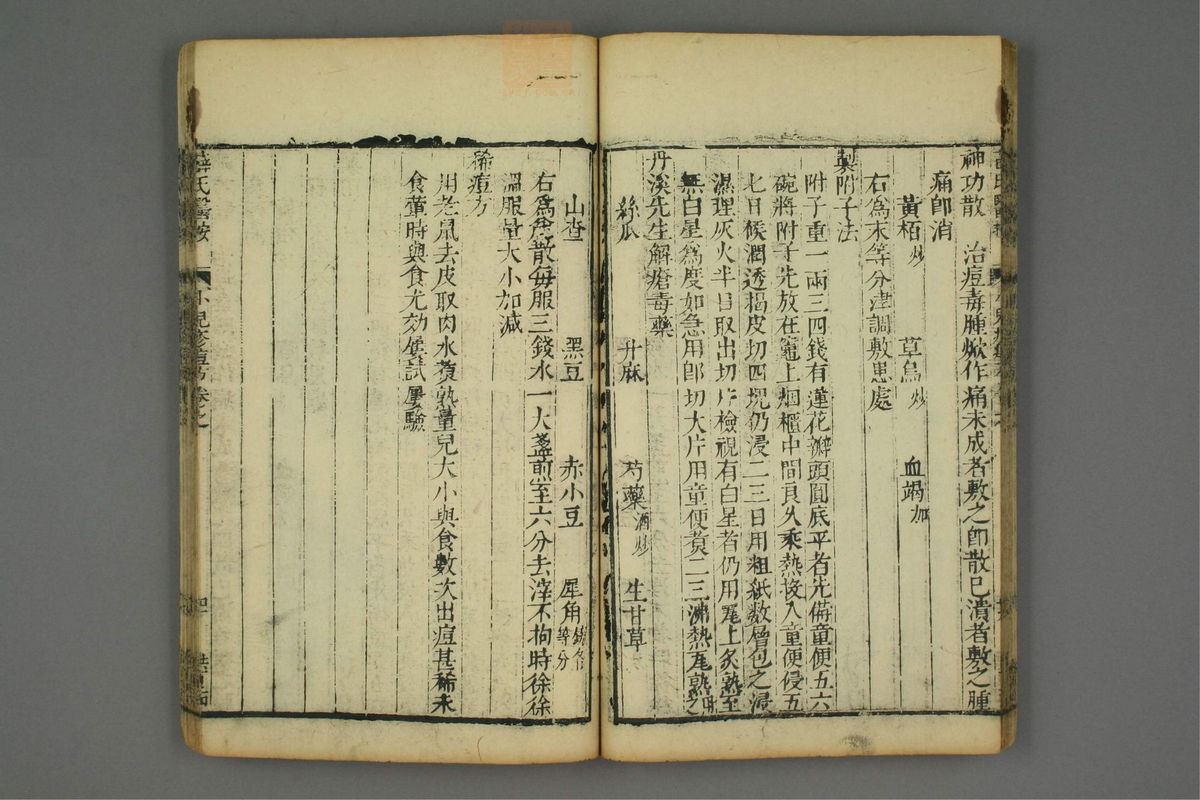 神功散　治痘毒腫焮作痛未成者敷之卽散已潰者敷之腫
痛卽消
黃栢炒　草烏炒　血竭加
右爲末等分津調敷患處
製附子法
附子重一兩三四錢有蓮花瓣頭圓底平者先備童便五六
碗將附子先放在竈上烟櫃中間良久乘熱後入童便浸五
七日候潤透揭皮切四塊仍浸二三日用粗紙數層包之浸
濕埋灰火半日取出切片檢視有白星者仍用瓦上炙熟至
無白星爲度如急用卽切大片用童便煑二三沸熱瓦熟用之
丹溪先生解瘡毒藥
絲瓜　升麻　芍藥酒炒　生甘草
山查　黑豆　赤小豆　犀角鎊各等分
右爲麄散每服三錢水一大盞煎至六分去滓不拘時徐徐
溫服量大小加減
稀痘方
用老鼠去皮取肉水煑熟量兒大小與食數次出痘甚稀未
食葷時與食尤効屢試屢驗
薛氏醫按　小兒疹痘方卷之